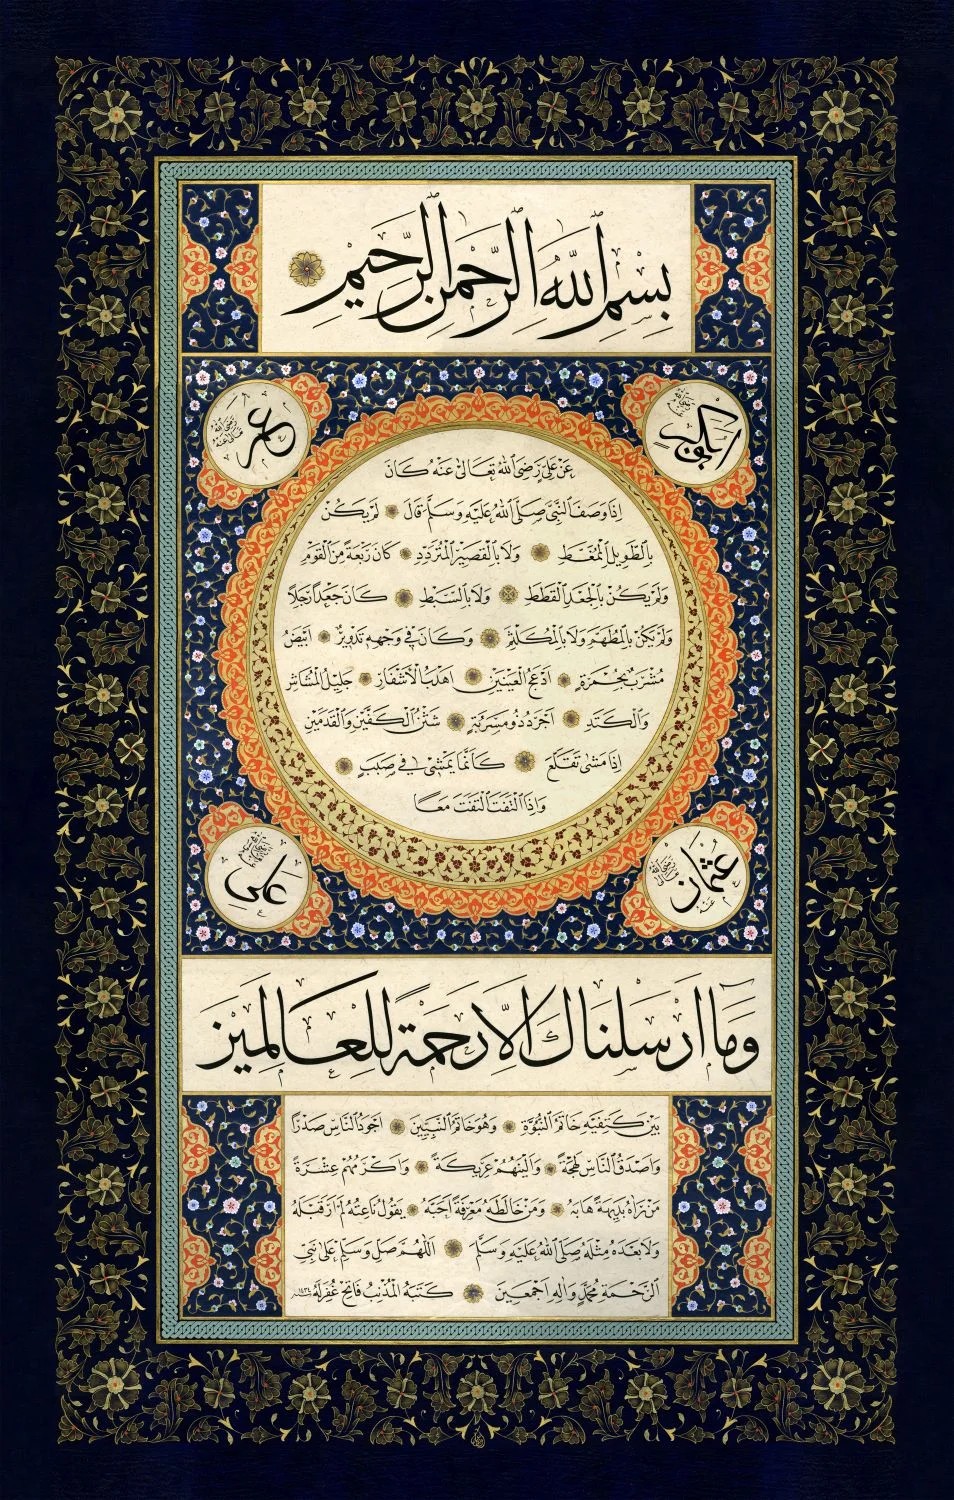 بِسْمِ اللهِ الرَّحْمٰنِ الرَّحِيمِ
ابوبكر رضى الله عنه
عمر رضى الله تعالى عنه
عَنْ عَلِىٍّ رَضِىَ اللهُ تَعَالٰى عَنْهُ كَانَ
اِذَا وَصَفَ النَّبِىَّ صَلَّى اللهُ عَلَيْهِ وَسَلَّمَ قَالَ لَمْ يَكُنْ
بِالطَّوِيلِ الْمُمَّغَطِ وَلَا بِالْقَصِيرِ الْمُتَرَدِّدِ كَانَ رَبْعَةً مِنَ الْقَوْمِ
وَلَمْ يَكُنْ بِالْجَعْدِ الْقَطَطِ وَلَا بِالسَّبْطِ كَانَ جَعْدًا رَجِلًا
وَلَمْ يَكُنْ بِالْمُطَهَّمِ وَلَا بِالْمُكَلْثَمِ وَكَانَ فِى وَجْهِهِ تَدْوِيرٌ اَبْيَضُ
مُشْرَبٌ بِحُمْرَةٍ اَدْعَجُ الْعَيْنَيْنِ اَهْدَبُ الْاَشْفَارِ جَلِيلُ الْمُشَاشِ
وَالْكَتَدِ اَجْرَدُ ذُو مَسْرُبَةٍ شَثْنُ الْكَفَّيْنِ وَالْقَدَمَيْنِ
اِذَا مَشٰى تَقَلَّعَ كَاَنَّمَا يَمْشِى فِى صَبَبٍ
وَاِذَا الْتَفَتَ الْتَفَتَ مَعًا
عثمان رضى الله تعالى عنه
على
وَمَا اَرْسَلْنَاكَ اِلَّا رَحْمَةً لِلْعَالَمِينَ
بَيْنَ كَتِفَيْهِ خَاتَمُ النُّبُوَّةِ وَهُوَ خَاتَمُ النَّبِيِّينَ اَجْوَدُ النَّاسِ صَدْرًا
وَاَصْدَقُ النَّاسِ لَهْجَةً وَاَلْيَنُهُمْ عَرِيكَةً وَاَكْرَمُهُمْ عِشْرَةً
مَنْ رَاٰهُ بَدِيهَةً هَابَهُ وَمَنْ خَالَطَهُ مَعْرِفَةً اَحَبَّهُ يَقُولُ نَاعِتُهُ لَمْ اَرَ قَبْلَهُ
وَلَا بَعْدَهُ مِثْلَهُ صَلَّى اللهُ عَلَيْهِ وَسَلَّمَ اَللّٰهُمَّ صَلِّ وَسَلِّمْ عَلٰى نَبِىِّ
الرَّحْمَةِ مُحَمَّدٍ وَاٰلِهِ اَجْمَعِينَ كَتَبَهُ الْمُذْنِبُ فَاتِحْ غُفِرَ لَهُ